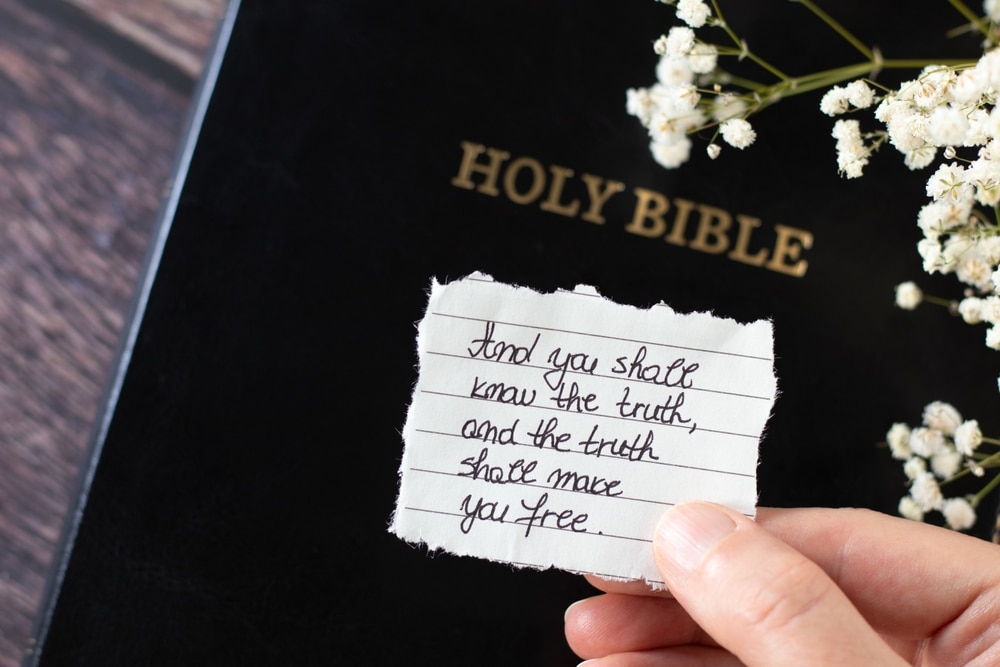 HOLY BIBLE
And you shall
know the truth,
and the truth
shall make
you free.